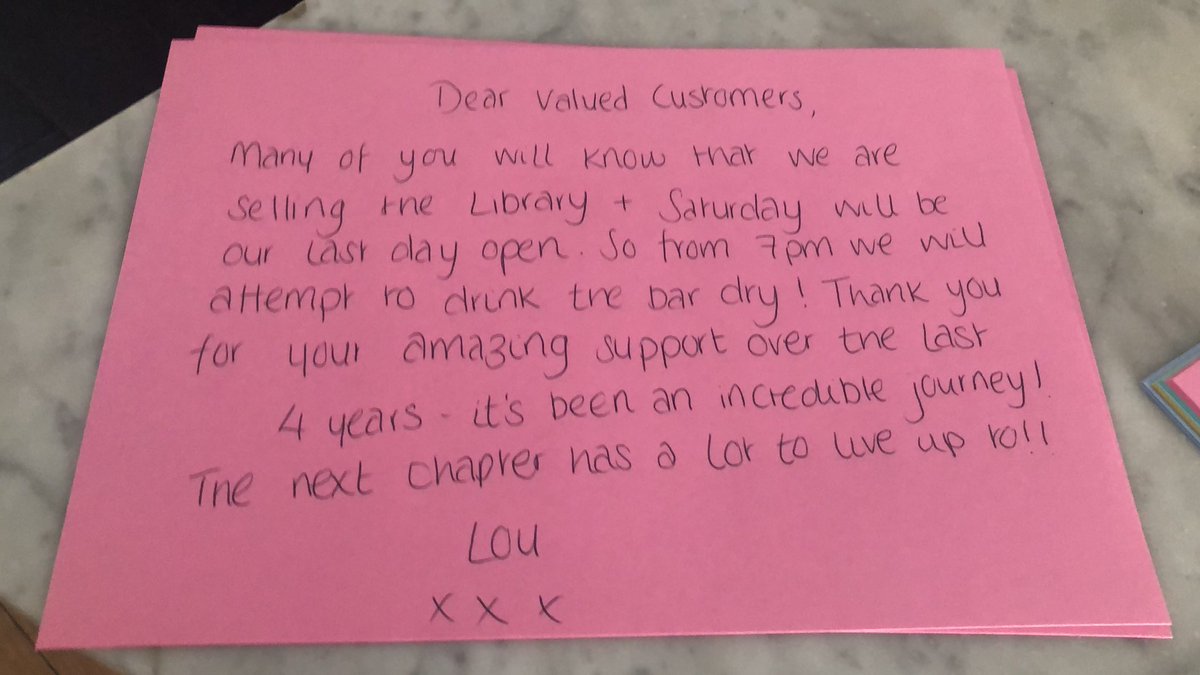 Dear Valued Customers,
Many of you will know that we are
selling the Library + Saturday will be
our last day open. So from 7pm we will
attempt to drink the bar dry! Thank you
for your amazing support over the last
4 years - it's been an incredible journey!
The next chapter has a lot to live up to!!
LOU
x x x